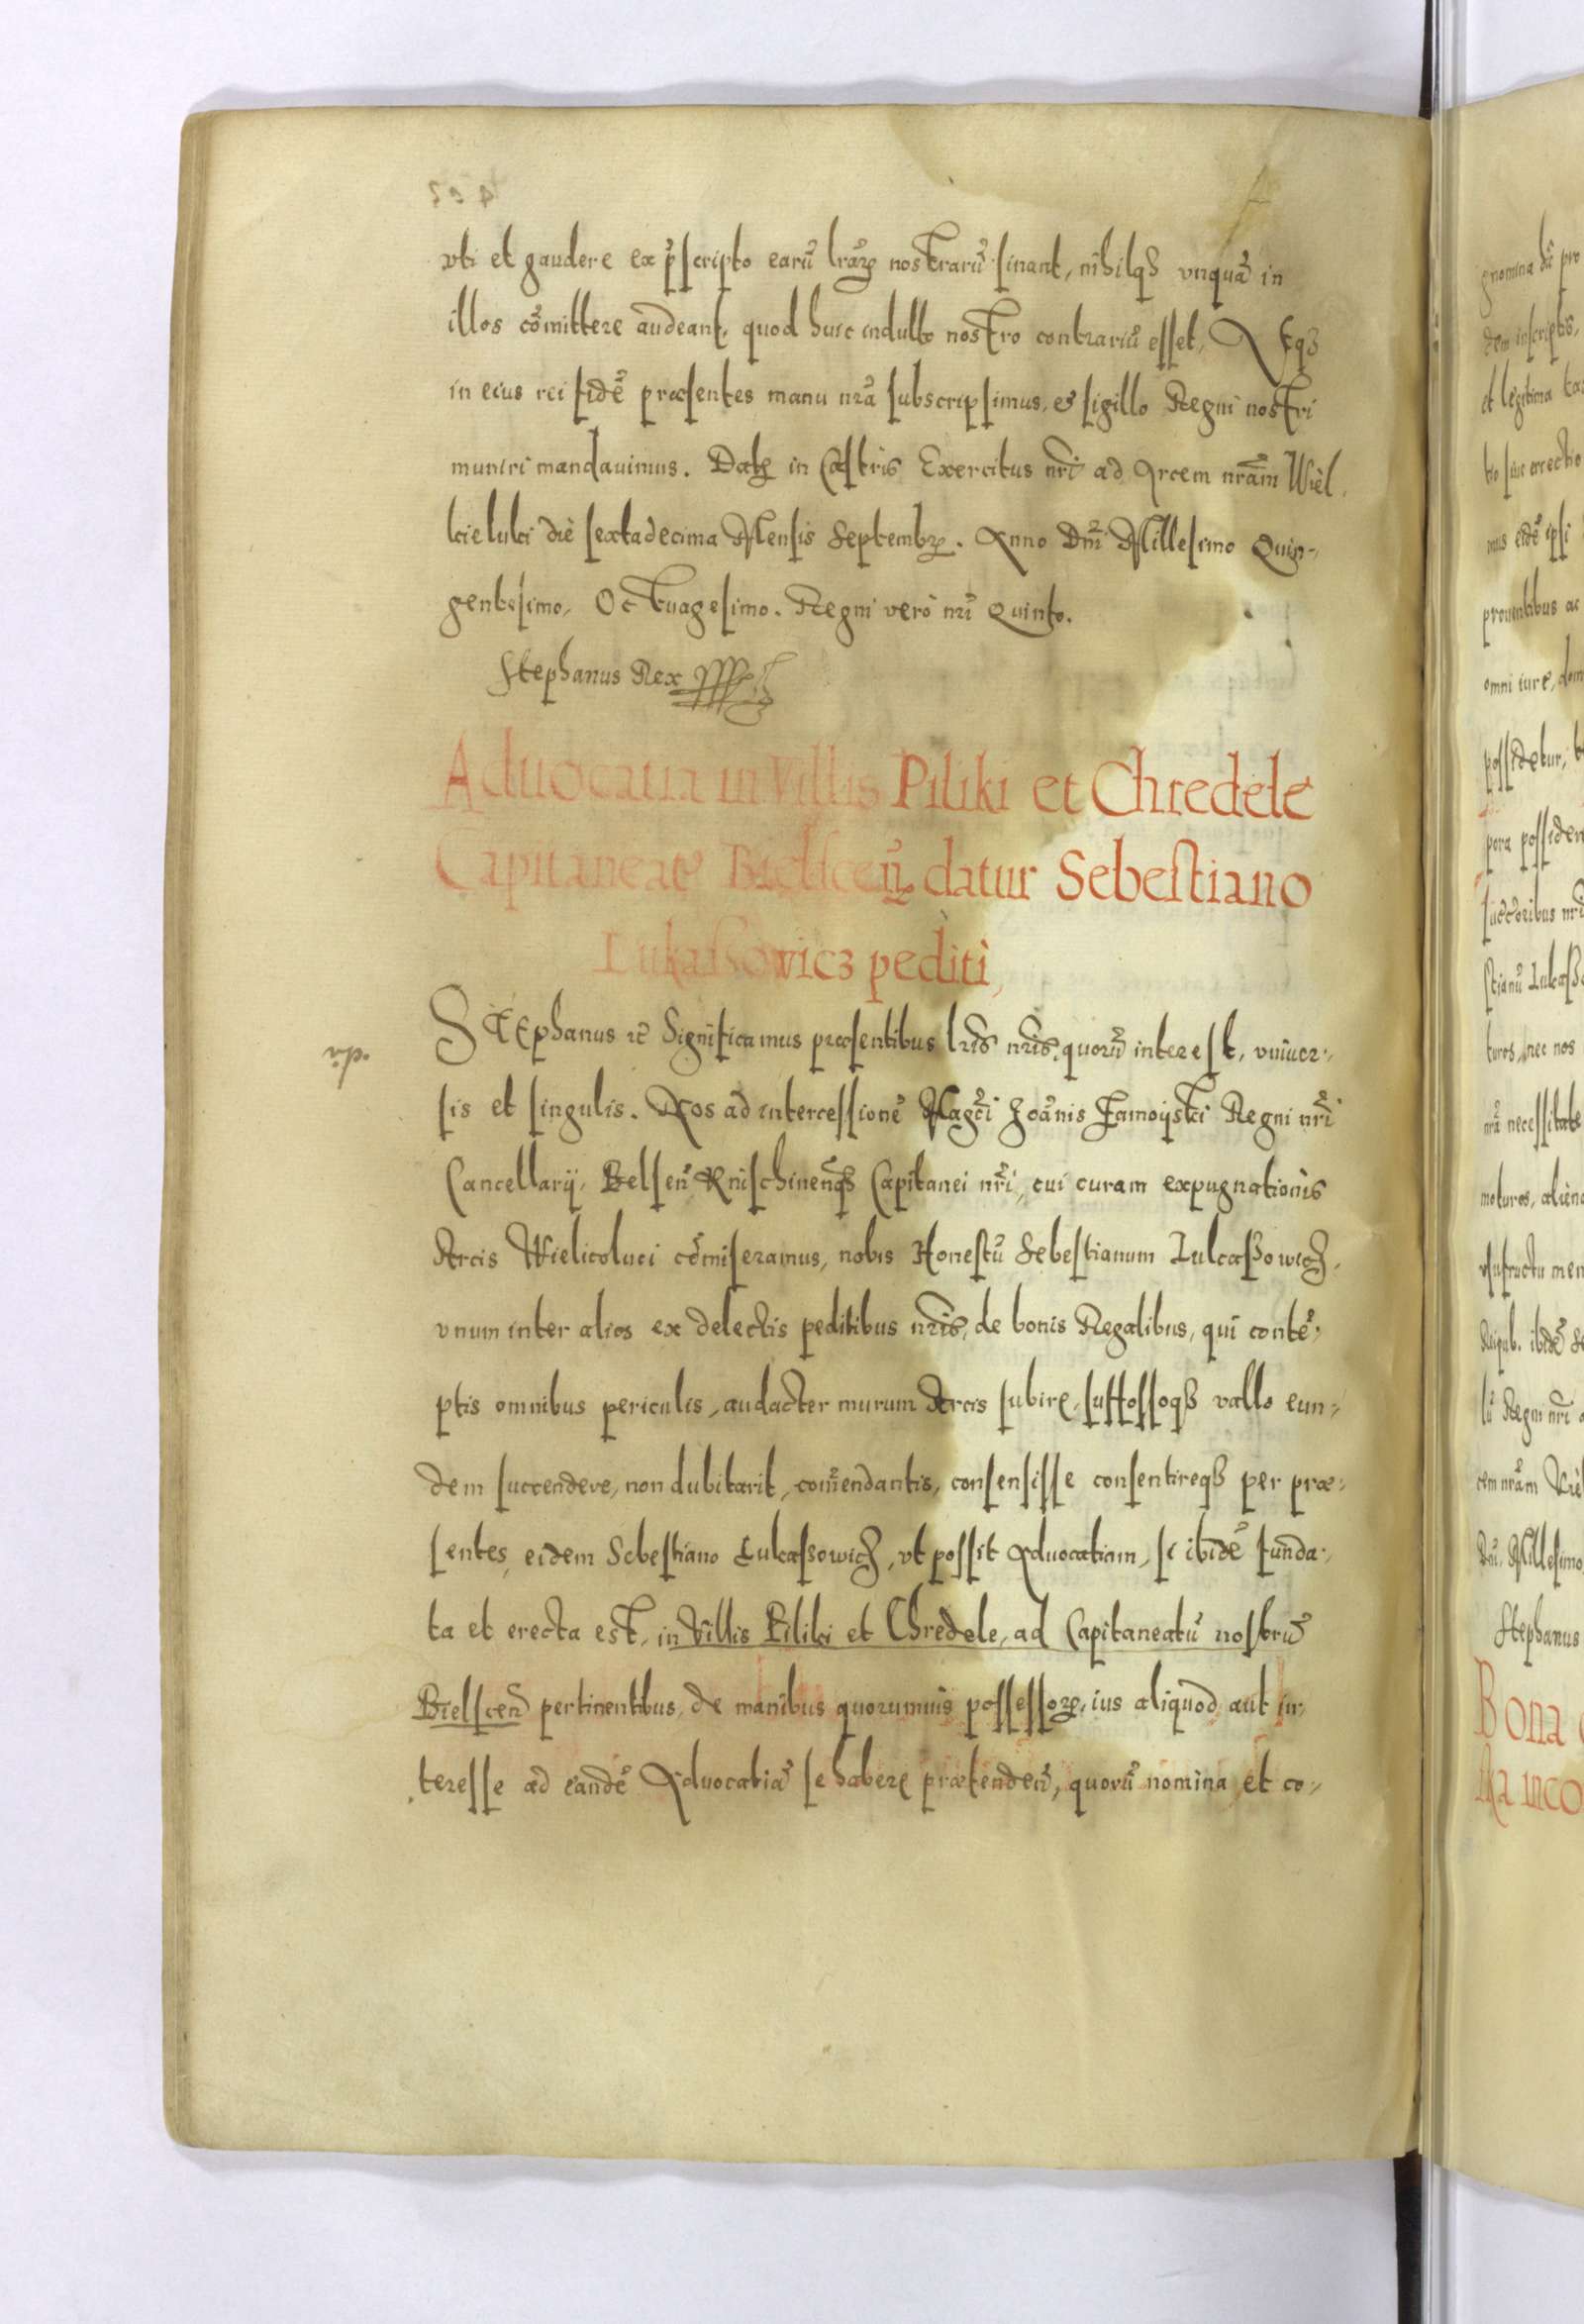 vti et gaudere ex p̃scripto earũ lrãꝝ nostrarũ sinant, nihilqȝ vnquã in
illos cõmittere audeant, quod huic indulto nostro contrariũ esset, Atqȝ
in eius rei fidẽ præsentes manu nrã subscripsimus, et sigillo Regni nostri
muniri mandauimus. Datꝝ in Castris Exercitus nrĩ ad Arcem nrãm Wiel
kieluki die sextadecima Mensis Septembꝝ. Anno Dnĩ Millesimo Quin-
gentesimo, Octuagesimo. Regni verò nrĩ Quinto.
Stephanus Rex
Aduocatia in Villis Piliki et Chredele
Capitaneat9 Bielscen̄ datur Sebestiano
Lukaßowicz pediti,
Stephanus rc̃ Significamus præsentibus lrĩs nrĩs, quorũ interest, vniuer-
sis et singulis. Nos ad intercessionẽ Magc̃i Joãnis Zamoÿski Regni nrĩ
Cancellarÿ, Belsen̄ Knischinen̄qȝ Capitanei nrĩ, cui curam expugnationis
Arcis Wielicoluci cõmiseramus, nobis Honestũ Sebestianum Lukaßowicz,
vnum inter alios ex delectis peditibus nrĩs, de bonis Regalibus, qui contẽ-
ptis omnibus periculis, audacter murum Arcis subire, suffossoqȝ vallo eun-
dem succendere, non dubitarit, com̃endantis, consensisse consentireqȝ per præ-
sentes, eidem Sebestiano Lukaßowicz, vt possit Aduocatiam, si ibidẽ funda-
ta et erecta est, in Villis Piliki et Chredele, ad Capitaneatũ nostrũ
Bielscen̄ pertinentibus, de manibus quorumuis possessoꝝ, ius aliquod aut in-
teresse ad eandẽ Aduocatiã se habere prætenden̄, quorũ nomina et co-